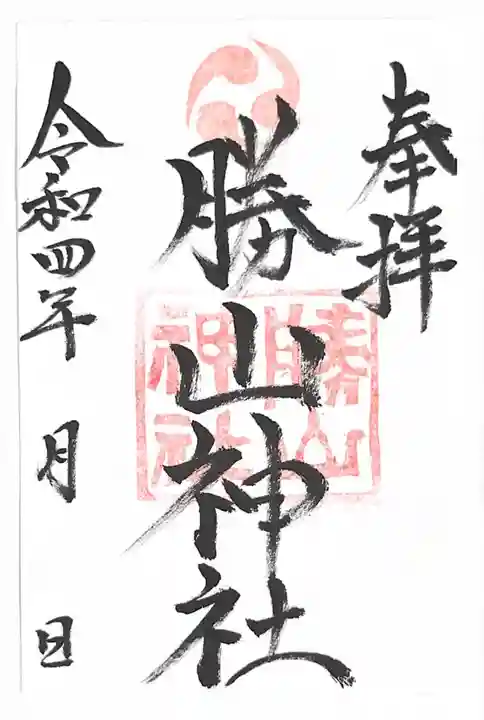 奉拝
勝山神社
勝山神社
令和四年 月 日